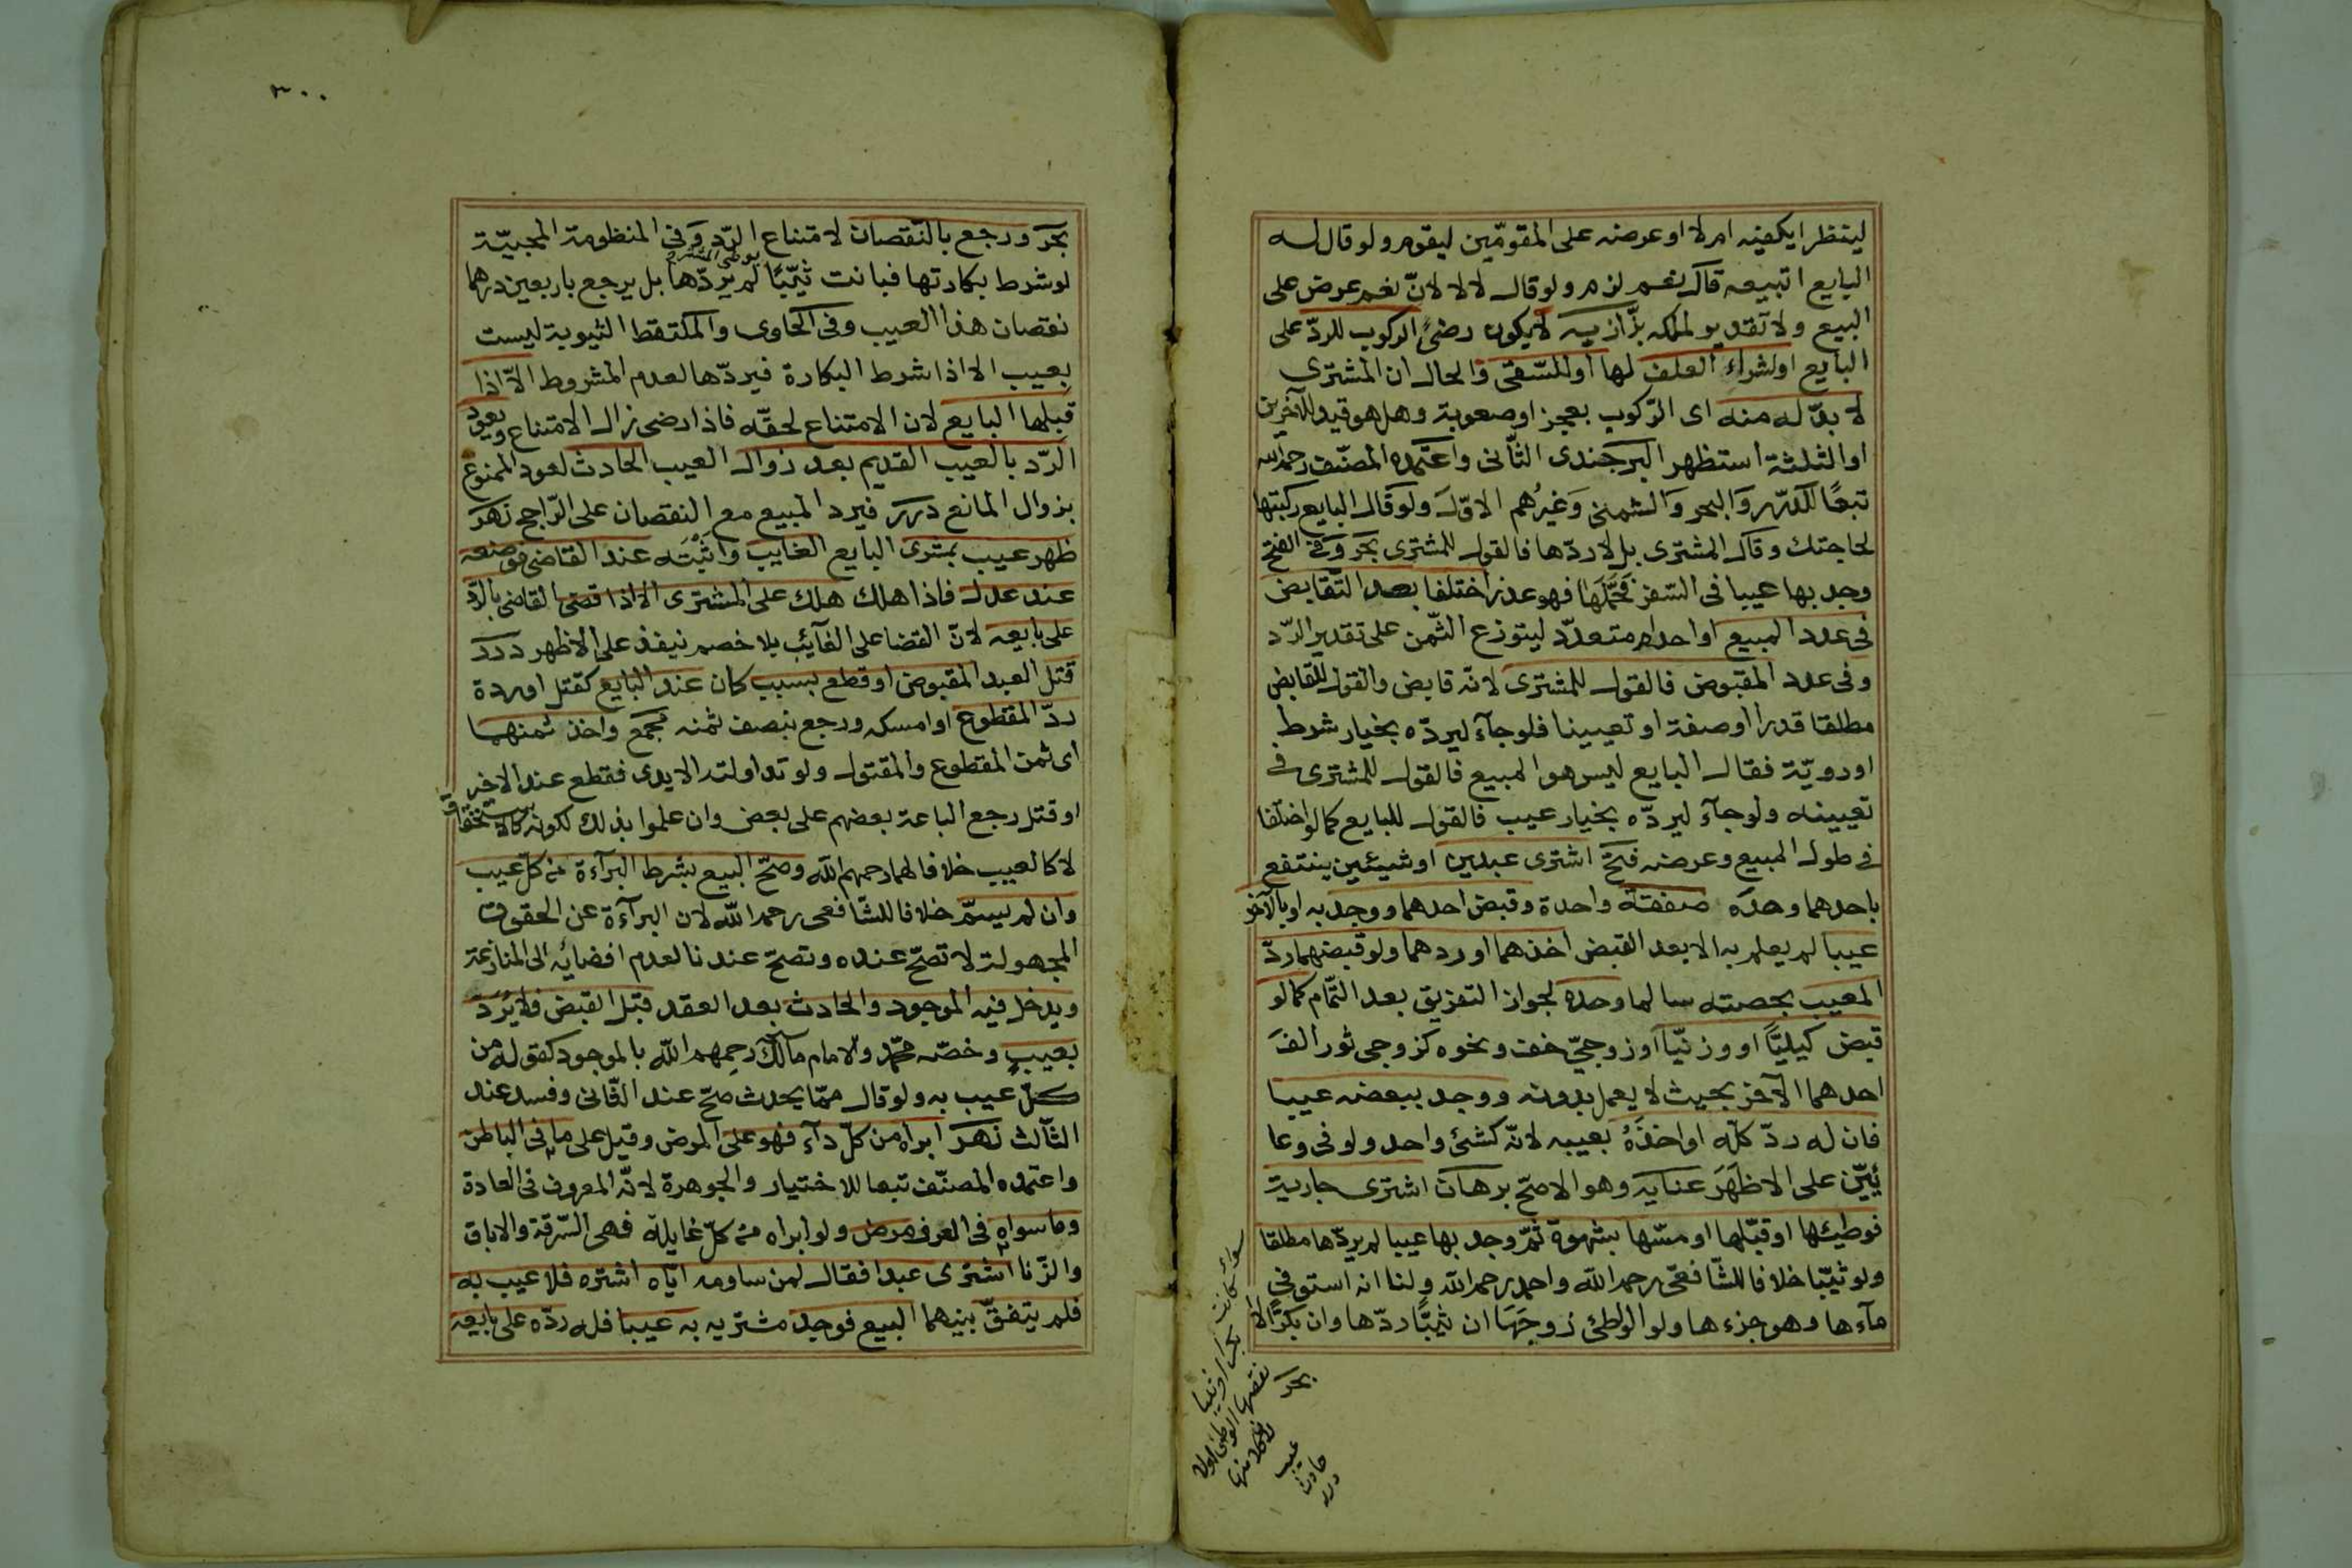 لينظر ايكفيه ام لا او عرضه على المقوّمين ليقوم ولو قال له
البايع اتبيعه قال نعم لزم ولو قال لا لا لانّ نعم عرض على
البيع ولا تقدير لملكه بزّازيه لا يكون رضىً الركوب للردّ على
البايع او لشراء العلف لها او للسّقى والحال ان المشترى
لا بدّ له منه اى الرّكوب بعجز او صعوبة وهل هو قيد للاخرين
او الثلثة استظهر البرجندى الثّانى واعتمده المصنّف رحمه الله
تبعًا للدّرر والبحر والشمنى وغيرُهم الاوّل ولو قال البايع ركبتها
لحاجتك وقال المشترى بل لاردّها فالقول للمشترى بحر وفى الفتح
وجد بها عيبا فى السّفر فحَمّلَها فهو عذر اختلفا بعد التّقابض
فى عدد المبيع اواحد ام متعدّد ليتوزع الثّمن على تقدير الرّد
وفى عدد المقبوض فالقول للمشترى لانّه قابض والقول للقابض
مطلقا قدرا او صفة او تعيينا فلو جآء ليردّه بخيار شرط
او رويّة فقال البايع ليس هو المبيع فالقول للمشترى فى
تعيينه ولو جآء ليردّه بخيار عيب فالقول للبايع كما لو اختلفا
فى طول المبيع وعرضه فتح اشترى عبدين او شيئين ينتفع
باحدهما وحدَه صفقة واحدة وقبض احدهما ووجد به او بالآخر
عيبا لم يعلم به الا بعد القبض اخذهما او ردهما ولو قبضهما ردّ
المعيب بحصته سالما وحده لجواز التفريق بعد التّمام كما لو
قبض كيليًّا او وزنيّا او زوجىّ خف ونحوه كزوجى ثور الفَ
احدهما الآخر بحيث لا يعمل بدونه ووجد ببعضه عيبا
فان له ردّ كلّه او اخذَهُ بعيبه لانّه كشئ واحد ولو فى وعا
ئيّن على الاظهَرَ عنايه وهو الاصحّ برهان اشترى جارية
فوطيئها او قبّلها او مسّها بشهوة ثمّ وجد بها عيبا لم يردّها مطلقا
ولو ثيّبا خلافا للشّافعىّ رحمه الله واحمد رحمه الله ولنا انه استوفى
مآءها وهو جزءها ولو الواطئ زوجَهَا ان ثيّبًا ردّها وان بكرًا لا
سوآء كانت بكرا او ثيبا
نقصها الوطئ اولا
بحر
عيب
حادث
درر
٣٠٠
بحر ورجع بالنّقصان لامتناع الرّد وفى المنظومة المحبيّة
لو شرط بكارتها فبانت ثيّبًا لم يردّها بل يرجع باربعين درهما
بوطئ المشترى
نقصان هذا العيب وفى الحاوى والملتقط الثيوبة ليست
بعيب الا اذا شرط البكارة فيردّها لعدم المشروط الّا اذا
قبلها البايع لان الامتناع لحقّه فاذا رضى زال الامتناع ويعود
الرّد بالعيب القديم بعد زوال العيب الحادث لعود الممنوع
بزوال المانع درر فيرد المبيع مع النقصان على الرّاجح نهر
ظهر عيب بمشرى البايع الغايب واثبَتَه عند القاضى فوضعه
عند عدل فاذا هلك هلك على المشترى الا اذا قضى القاضى بالرّد
على بايعه لانّ القضا على الغآئب بلا خصم ينفذ على الاظهر درر
قتل العبد المقبوض او قطع بسبب كان عند البايع كقتل او ردة
ردّ المقطوع او امسكه ورجع بنصف ثمنه مجمع واخذ ثمنهما
اى ثمن المقطوع والمقتول ولو تداولته الايدى فقطع عند الاخر
او قتل رجع الباعة بعضهم على بعض وان علموا بذلك لكونه كالاستحقاق
لا كالعيب خلافا لهما رحمهم الله وصحّ البيع بشرط البرآءة من كلّ عيب
وان لم يسمّ خلافا للشّافعى رحمه الله لان البرآءة عن الحقوق
المجهولة لا تصحّ عنده وتصحّ عندنا لعدم افضائه الى المنازعة
ويدخل فيه الموجود والحادث بعد العقد قبل القبض فلا يُردّ
بعيبٍ وخصّه محمّد والامام مالك رحمهم الله بالموجود كقوله من
كلّ عيب به ولو قال ممّا يحدث صحّ عند الثّانى وفسد عند
الثّالث نهر ابراه من كلّ دآء فهو على المرض وقيل على ما فى الباطن
واعتمده المصنّف تبعا للاختيار والجوهرة لانّه المعروف فى العادة
وما سواه فى العرف مرض ولو ابراه من كلّ غايلة فهى السّرقة والاباق
والزّنا اشترى عبدا فقال لمن ساومه ايّاه اشتره فلا عيب به
فلم يتفقّ بينهما البيع فوجد مشتريه به عيبا فله ردّه على بايعه